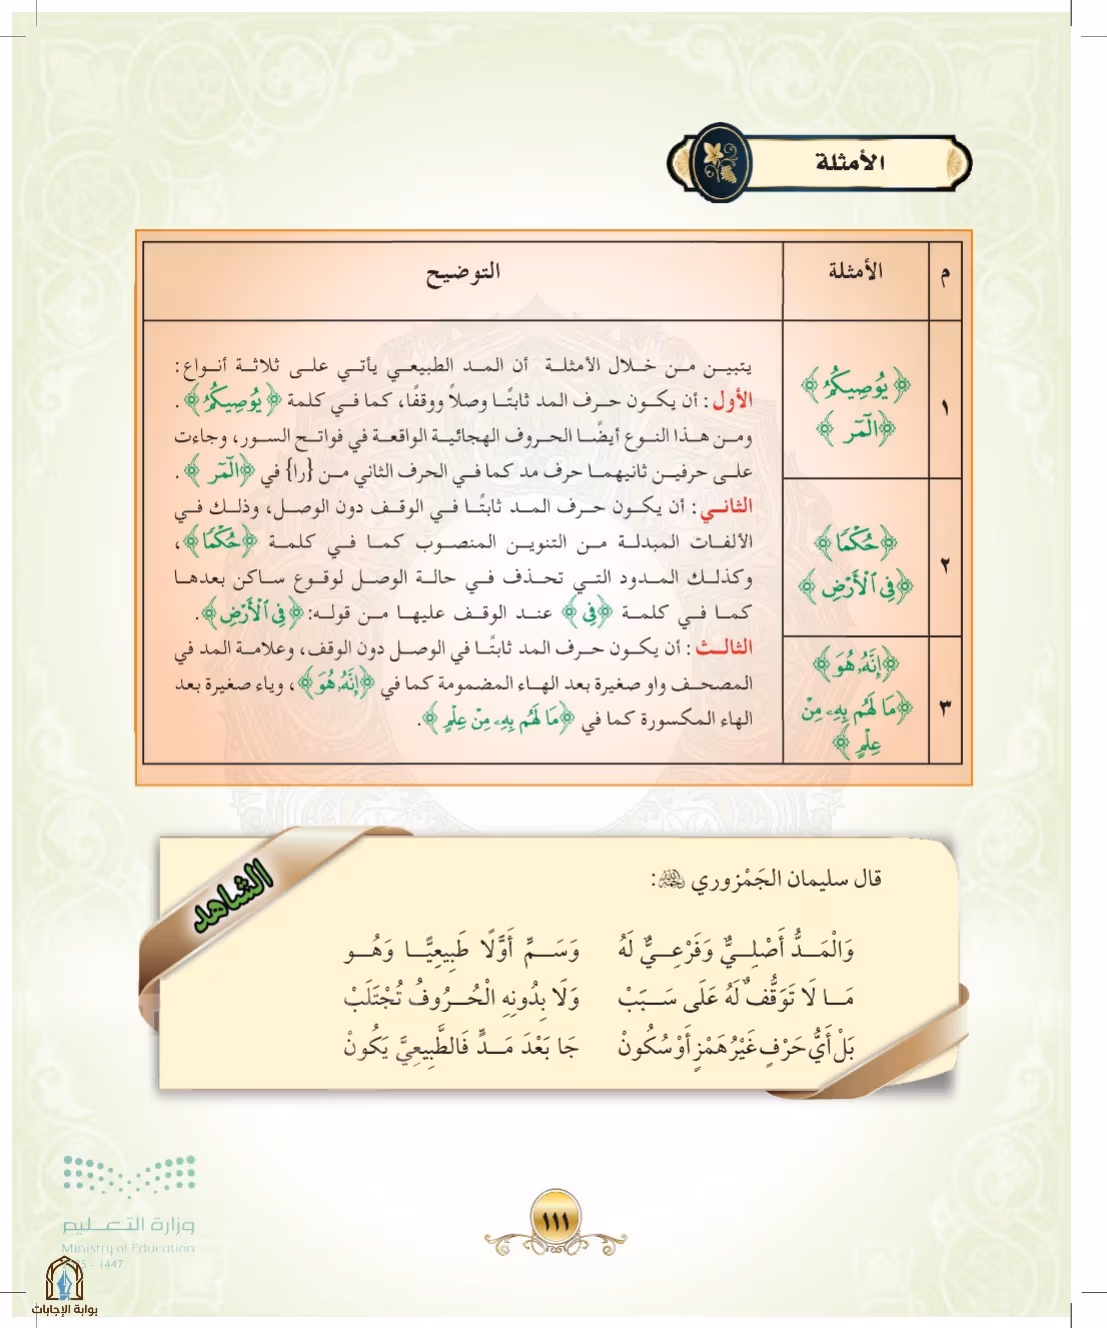 الأمثلة
م
الأمثلة
التوضيح
١
﴿يُوصِيكُمُ﴾
﴿الٓمٓر﴾
٢
﴿حُكْمًا﴾
﴿فِي ٱلْأَرْضِ﴾
٣
﴿إِنَّهُۥ هُوَ﴾
﴿مَا لَهُم بِهِۦ مِنْ
عِلْمٍ﴾
يتبين من خلال الأمثلة أن المد الطبيعي يأتي على ثلاثة أنواع:
الأول: أن يكون حرف المد ثابتًا وصلاً ووقفًا، كما في كلمة ﴿يُوصِيكُمُ﴾.
ومن هذا النوع أيضًا الحروف الهجائية الواقعة في فواتح السور، وجاءت
على حرفين ثانيهما حرف مد كما في الحرف الثاني من {را} في ﴿الٓمٓر﴾.
الثاني: أن يكون حرف المد ثابتًا في الوقف دون الوصل، وذلك في
الألفات المبدلة من التنوين المنصوب كما في كلمة ﴿حُكْمًا﴾،
وكذلك المدود التي تحذف في حالة الوصل لوقوع ساكن بعدها
كما في كلمة ﴿فِي﴾ عند الوقف عليها من قوله: ﴿فِي ٱلْأَرْضِ﴾.
الثالث: أن يكون حرف المد ثابتًا في الوصل دون الوقف، وعلامة المد في
المصحف واو صغيرة بعد الهاء المضمومة كما في ﴿إِنَّهُۥ هُوَ﴾، وياء صغيرة بعد
الهاء المكسورة كما في ﴿مَا لَهُم بِهِۦ مِنْ عِلْمٍ﴾.
الشاهد
قال سليمان الجَمْزوري رحمه الله:
وَالْمَدُّ أَصْلِيٌّ وَفَرْعِيٌّ لَهُ وَسَمِّ أَوَّلًا طَبِيعِيًّا وَهُو
مَا لَا تَوَقُّفٌ لَهُ عَلَى سَبَبْ وَلَا بِدُونِهِ الْحُرُوفُ تُجْتَلَبْ
بَلْ أَيُّ حَرْفٍ غَيْرُ هَمْزٍ أَوْ سُكُونْ جَا بَعْدَ مَدٍّ فَالطَّبِيعِيَّ يَكُونْ
وزارة التعليم
Ministry of Education
5 - 1447
١١١
بوابة الإجابات